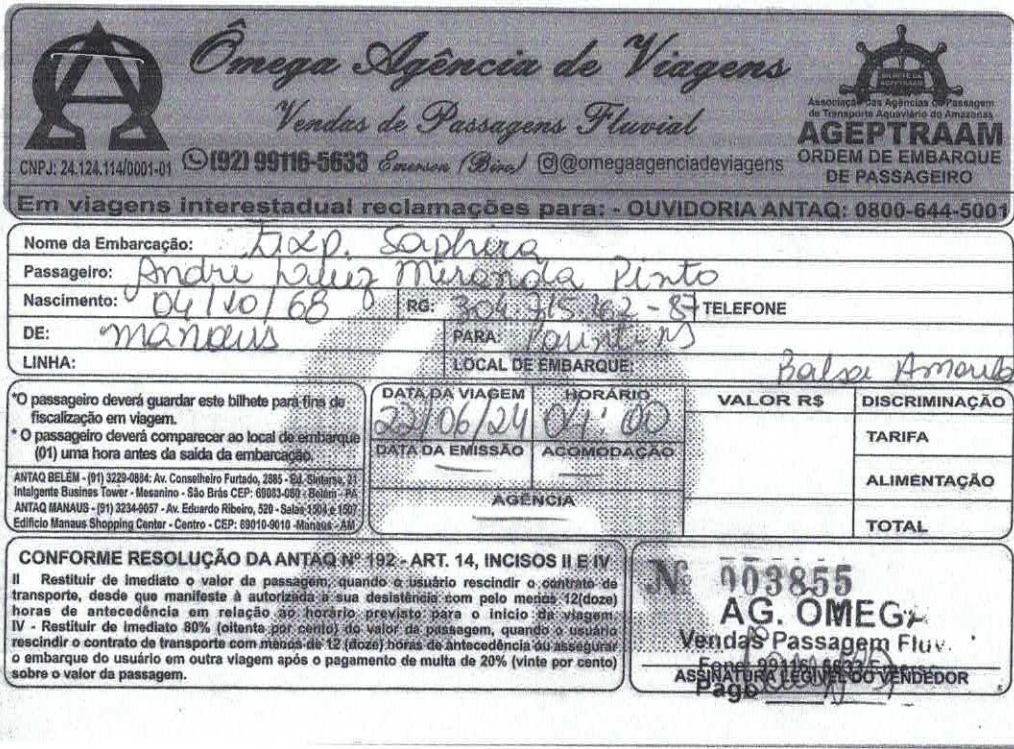 Ômega Agência de Viagens
Vendas de Passagens Fluvial
CNPJ: 24.124.114/0001-01 (92) 99116-5633 Emerson (Bira) @omegaagenciadeviagens
BILHETE DA AGEPTRAAM
Associação das Agências de Passagem
de Transporte Aquaviário do Amazonas
AGEPTRAAM
ORDEM DE EMBARQUE
DE PASSAGEIRO
Em viagens interestadual reclamações para: - OUVIDORIA ANTAQ: 0800-644-5001
Nome da Embarcação: Exp. Saphira
Passageiro: André Luiz Miranda Pinto
Nascimento: 04/10/68 RG: 304.715.462-87 TELEFONE
DE: Manaus PARA: Parintins
LINHA: LOCAL DE EMBARQUE: Balsa Amarela
*O passageiro deverá guardar este bilhete para fins de
fiscalização em viagem.
* O passageiro deverá comparecer ao local de embarque
(01) uma hora antes da saída da embarcação.
ANTAQ BELÉM - (91) 3229-0884: Av. Conselheiro Furtado, 2885 - Ed. Sintarse, 21
Intalgente Busines Tower - Mesanino - São Brás CEP: 69083-060 - Belém - PA
ANTAQ MANAUS - (91) 3234-0057 - Av. Eduardo Ribeiro, 520 - Salas 1504 e 1507
Edifício Manaus Shopping Center - Centro - CEP: 69010-9010 - Manaus - AM
DATA DA VIAGEM HORÁRIO
22/06/24 01:00
DATA DA EMISSÃO ACOMODAÇÃO
AGÊNCIA
VALOR R$ DISCRIMINAÇÃO
TARIFA
ALIMENTAÇÃO
TOTAL
CONFORME RESOLUÇÃO DA ANTAQ Nº 192 - ART. 14, INCISOS II E IV
II Restituir de imediato o valor da passagem, quando o usuário rescindir o contrato de
transporte, desde que manifeste à autorizada a sua desistência com pelo menos 12(doze)
horas de antecedência em relação ao horário previsto para o início da viagem.
IV - Restituir de imediato 80% (oitenta por cento) do valor da passagem, quando o usuário
rescindir o contrato de transporte com menos de 12 (doze) horas de antecedência ou assegurar
o embarque do usuário em outra viagem após o pagamento de multa de 20% (vinte por cento)
sobre o valor da passagem.
Nº 003855
AG. ÔMEGA
Vendas Passagem Fluv.
ASSINATURA LEGÍVEL DO VENDEDOR
Pago